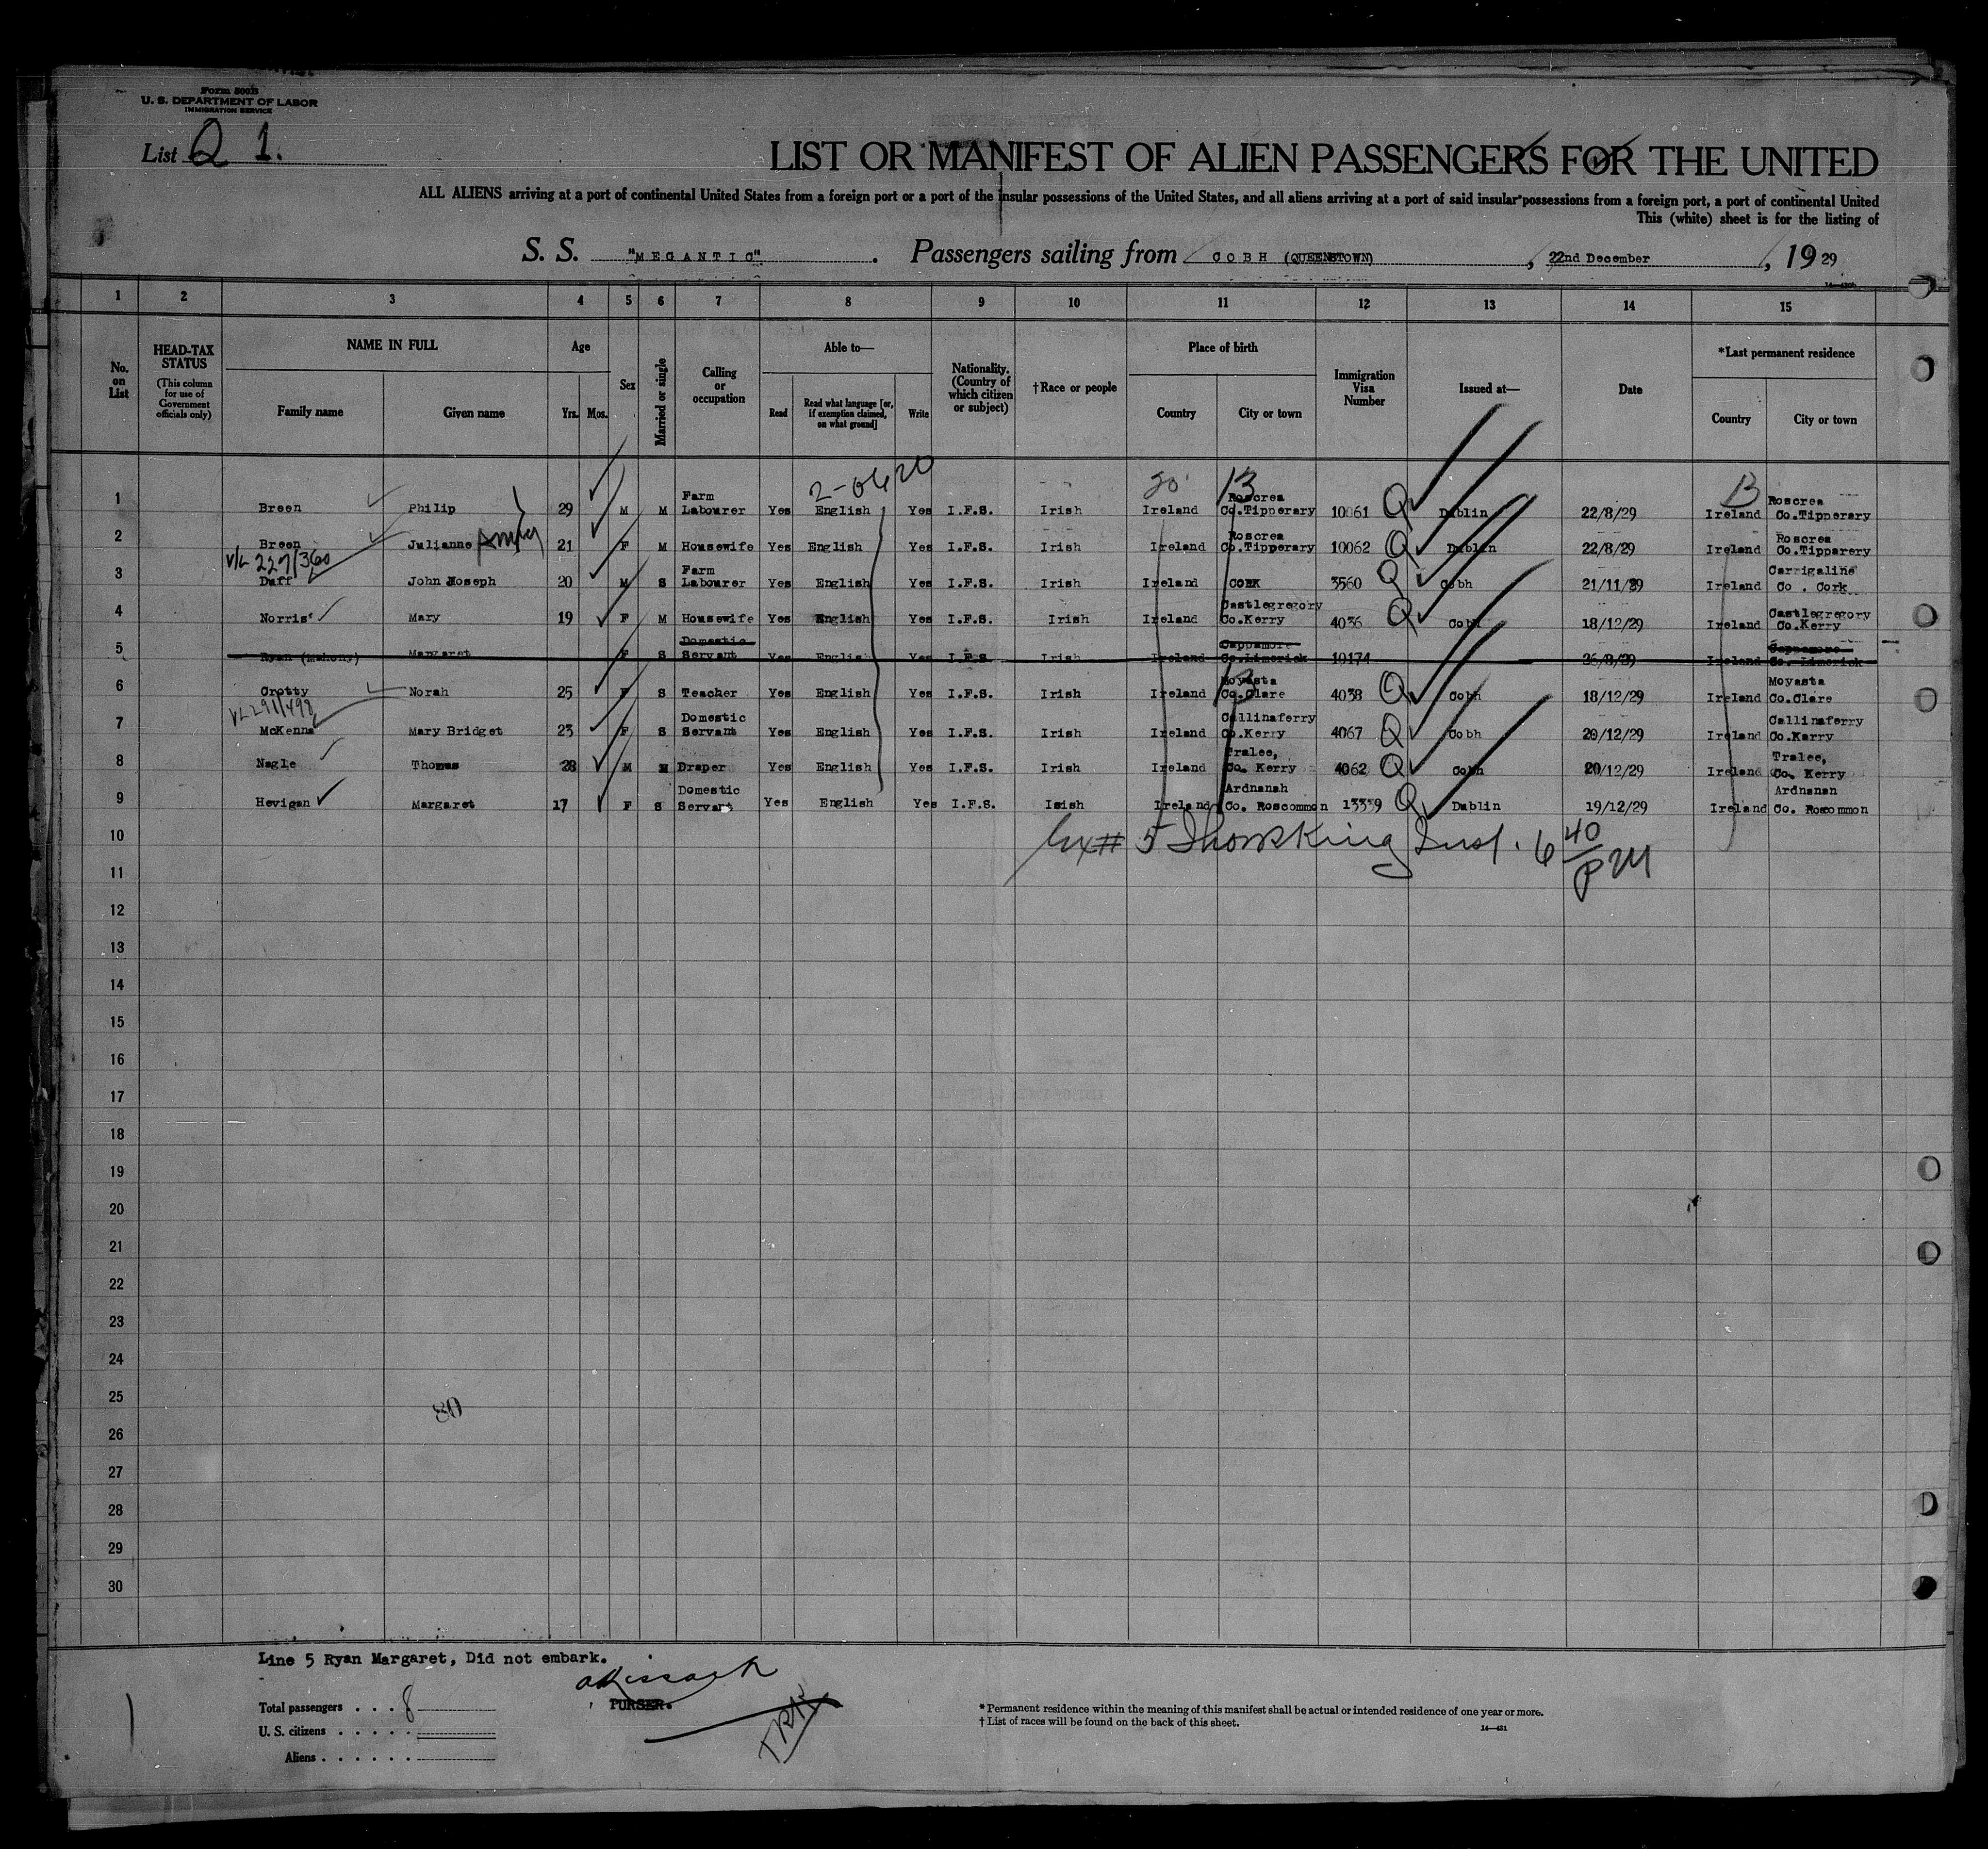 Form 500B
U. S. DEPARTMENT OF LABOR
IMMIGRATION SERVICE
List Q 1.
LIST OR MANIFEST OF ALIEN PASSENGERS FOR THE UNITED
ALL ALIENS arriving at a port of continental United States from a foreign port or a port of the insular possessions of the United States, and all aliens arriving at a port of said insular possessions from a foreign port, a port of continental United
This (white) sheet is for the listing of
S. S. "MEGANTIC". Passengers sailing from COBH (QUEENSTOWN), 22nd December, 19 29
1 2 3 4 5 6 7 8 9 10 11 12 13 14 15
No. on List
HEAD-TAX STATUS
(This column for use of Government officials only)
NAME IN FULL
Family name Given name
Age
Yrs. Mos.
Sex
Married or single
Calling or occupation
Able to—
Read
Read what language [or, if exemption claimed, on what ground]
Write
Nationality. (Country of which citizen or subject)
†Race or people
Place of birth
Country City or town
Immigration Visa Number
Issued at—
Date
*Last permanent residence
Country City or town
20 13 B
1 Breen Philip 29 M M Farm Labourer Yes English Yes I.F.S. Irish Ireland Roscrea Co.Tipperary 10061 Q Dublin 22/8/29 Ireland Roscrea Co.Tipperary
2 Breen Julianne 21 F M Housewife Yes English Yes I.F.S. Irish Ireland Roscrea Co.Tipperary 10062 Q Dublin 22/8/29 Ireland Roscrea Co.Tipparery
V/L 227/360
3 Duff John Joseph 20 M S Farm Labourer Yes English Yes I.F.S. Irish Ireland CORK 3560 Q Cobh 21/11/29 Ireland Carrigaline Co . Cork
4 Norris Mary 19 F M Housewife Yes English Yes I.F.S. Irish Ireland Castlegregory Co.Kerry 4036 Q Cobh 18/12/29 Ireland Castlegregory Co.Kerry
5 Ryan (Mahony) Margaret F S Domestic Servant Yes English Yes I.F.S. Irish Ireland Cappamore Co.Limerick 10174 26/8/29 Ireland Cappamore Co. Limerick
6 Crotty Norah 25 F S Teacher Yes English Yes I.F.S. Irish Ireland Moyasta Co.Clare 4038 Q Cobh 18/12/29 Ireland Moyasta Co.Clare
VL291/498
7 McKenna Mary Bridget 23 F S Domestic Servant Yes English Yes I.F.S. Irish Ireland Callinaferry Co.Kerry 4067 Q Cobh 20/12/29 Ireland Callinaferry Co.Karry
8 Nagle Thomas 28 M M Draper Yes English Yes I.F.S. Irish Ireland Tralee, Co. Kerry 4062 Q Cobh 20/12/29 Ireland Tralee, Co. Kerry
9 Hevigan Margaret 17 F S Domestic Servant Yes English Yes I.F.S. Irish Ireland Ardnanah Co. Roscommon 13339 Q Dublin 19/12/29 Ireland Ardnanan Co. Roscommon
10
11
12
13
14
15
16
17
18
19
20
21
22
23
24
25
26
27
28
29
30
Line 5 Ryan Margaret, Did not embark.
PURSER.
Total passengers . . . 8
U. S. citizens . . . . .
Aliens . . . . . .
* Permanent residence within the meaning of this manifest shall be actual or intended residence of one year or more.
† List of races will be found on the back of this sheet.
14—431